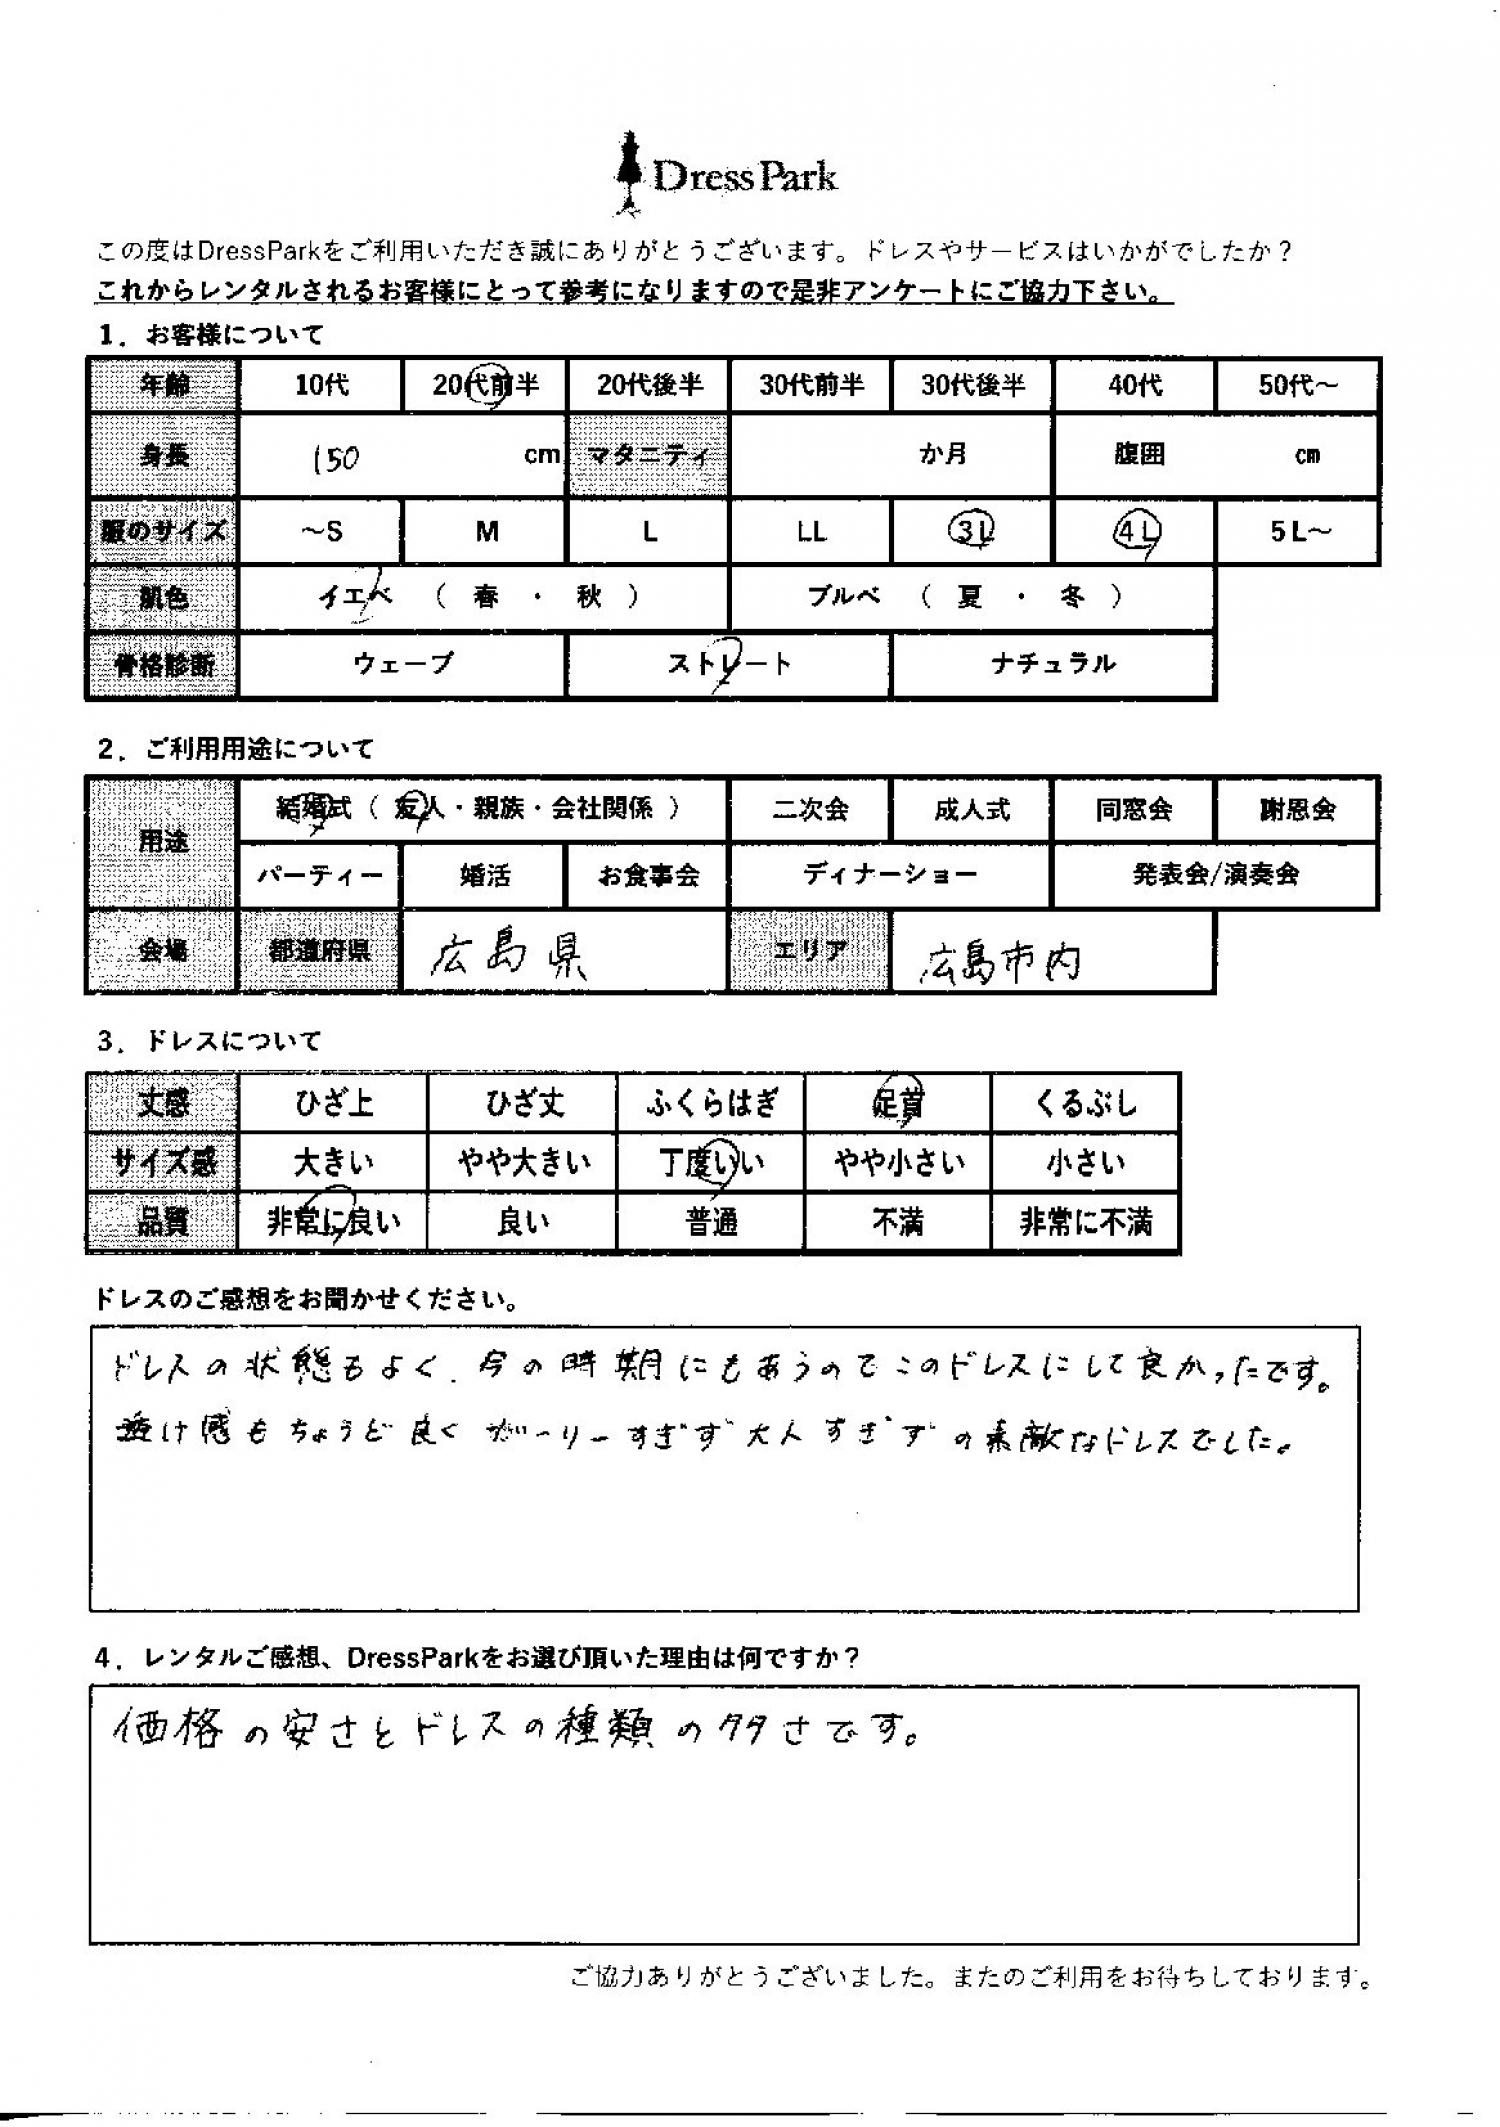 DressPark
この度はDressParkをご利用いただき誠にありがとうございます。ドレスやサービスはいかがでしたか？
これからレンタルされるお客様にとって参考になりますので是非アンケートにご協力下さい。
1．お客様について
年齢 10代 20代前半 20代後半 30代前半 30代後半 40代 50代～
身長 150 cm マタニティ か月 腹囲 cm
服のサイズ ～S M L LL 3L 4L 5L～
肌色 イエベ （ 春 ・ 秋 ） ブルベ （ 夏 ・ 冬 ）
骨格診断 ウェーブ ストレート ナチュラル
2．ご利用用途について
用途 結婚式（ 友人・親族・会社関係 ） 二次会 成人式 同窓会 謝恩会
パーティー 婚活 お食事会 ディナーショー 発表会/演奏会
会場 都道府県 広島県 エリア 広島市内
3．ドレスについて
丈感 ひざ上 ひざ丈 ふくらはぎ 足首 くるぶし
サイズ感 大きい やや大きい 丁度いい やや小さい 小さい
品質 非常に良い 良い 普通 不満 非常に不満
ドレスのご感想をお聞かせください。
ドレスの状態もよく、今の時期にもあうのでこのドレスにして良かったです。
透け感もちょうど良くガーリーすぎず大人すぎずの素敵なドレスでした。
4．レンタルご感想、DressParkをお選び頂いた理由は何ですか？
価格の安さとドレスの種類の多さです。
ご協力ありがとうございました。またのご利用をお待ちしております。